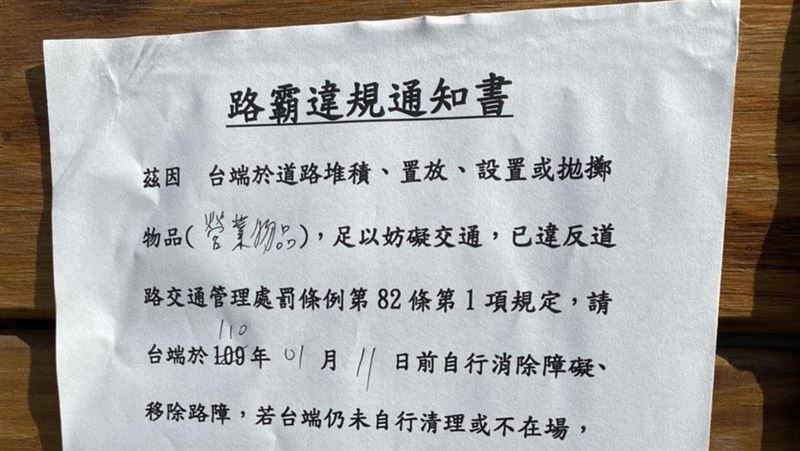 路霸違規通知書
茲因 台端於道路堆積、置放、設置或拋擲
物品(營業物品)，足以妨礙交通，已違反道
路交通管理處罰條例第82條第1項規定，請
110
台端於109年01月11日前自行消除障礙、
移除路障，若台端仍未自行清理或不在場，